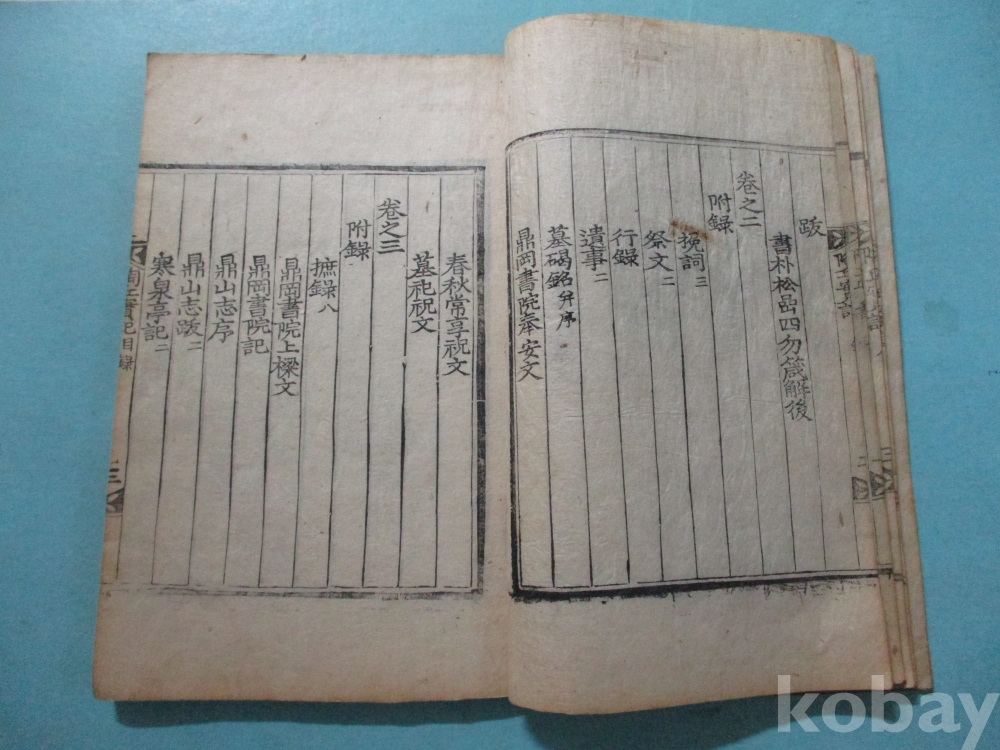 跋
書朴松嵒四勿箴解後
卷之二
附錄
挽詞三
祭文二
行錄
遺事二
墓碣銘并序
鼎岡書院奉安文
春秋常享祝文
墓祀祝文
卷之三
附錄
摭錄八
鼎岡書院上樑文
鼎岡書院記
鼎山志序
鼎山志跋二
寒泉亭記二
實記目錄
三
kobay